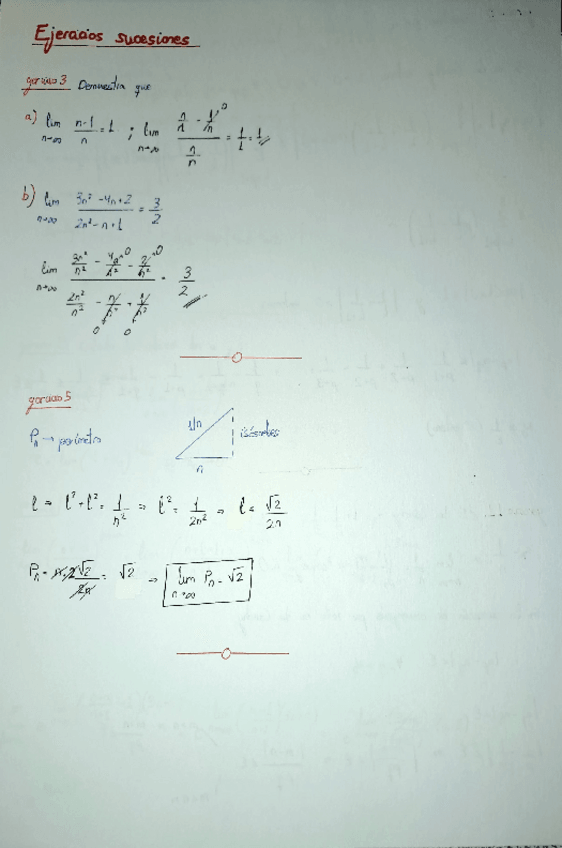 Ejercicios sucesiones
Demuestra que
a) lim n→∞ n-1/n = 1 ; lim n→∞ (n/n - 1/n^0)/(n/n) = 1/1 = 1
b) lim n→∞ (3n² - 4n + 2)/(2n² - n + 1) = 3/2
lim n→∞ (3n²/n² - 4n/n²^0 - 2/n²^0)/(2n²/n² - n/n² + 1/n²) = 3/2
0 0
1/n
Pn → perímetro
isósceles
n
l → l² + l² = 1/n² → l² = 1/2n² → l = √2/2n
Pn = n·2√2/2n = √2 → lim n→∞ Pn = √2